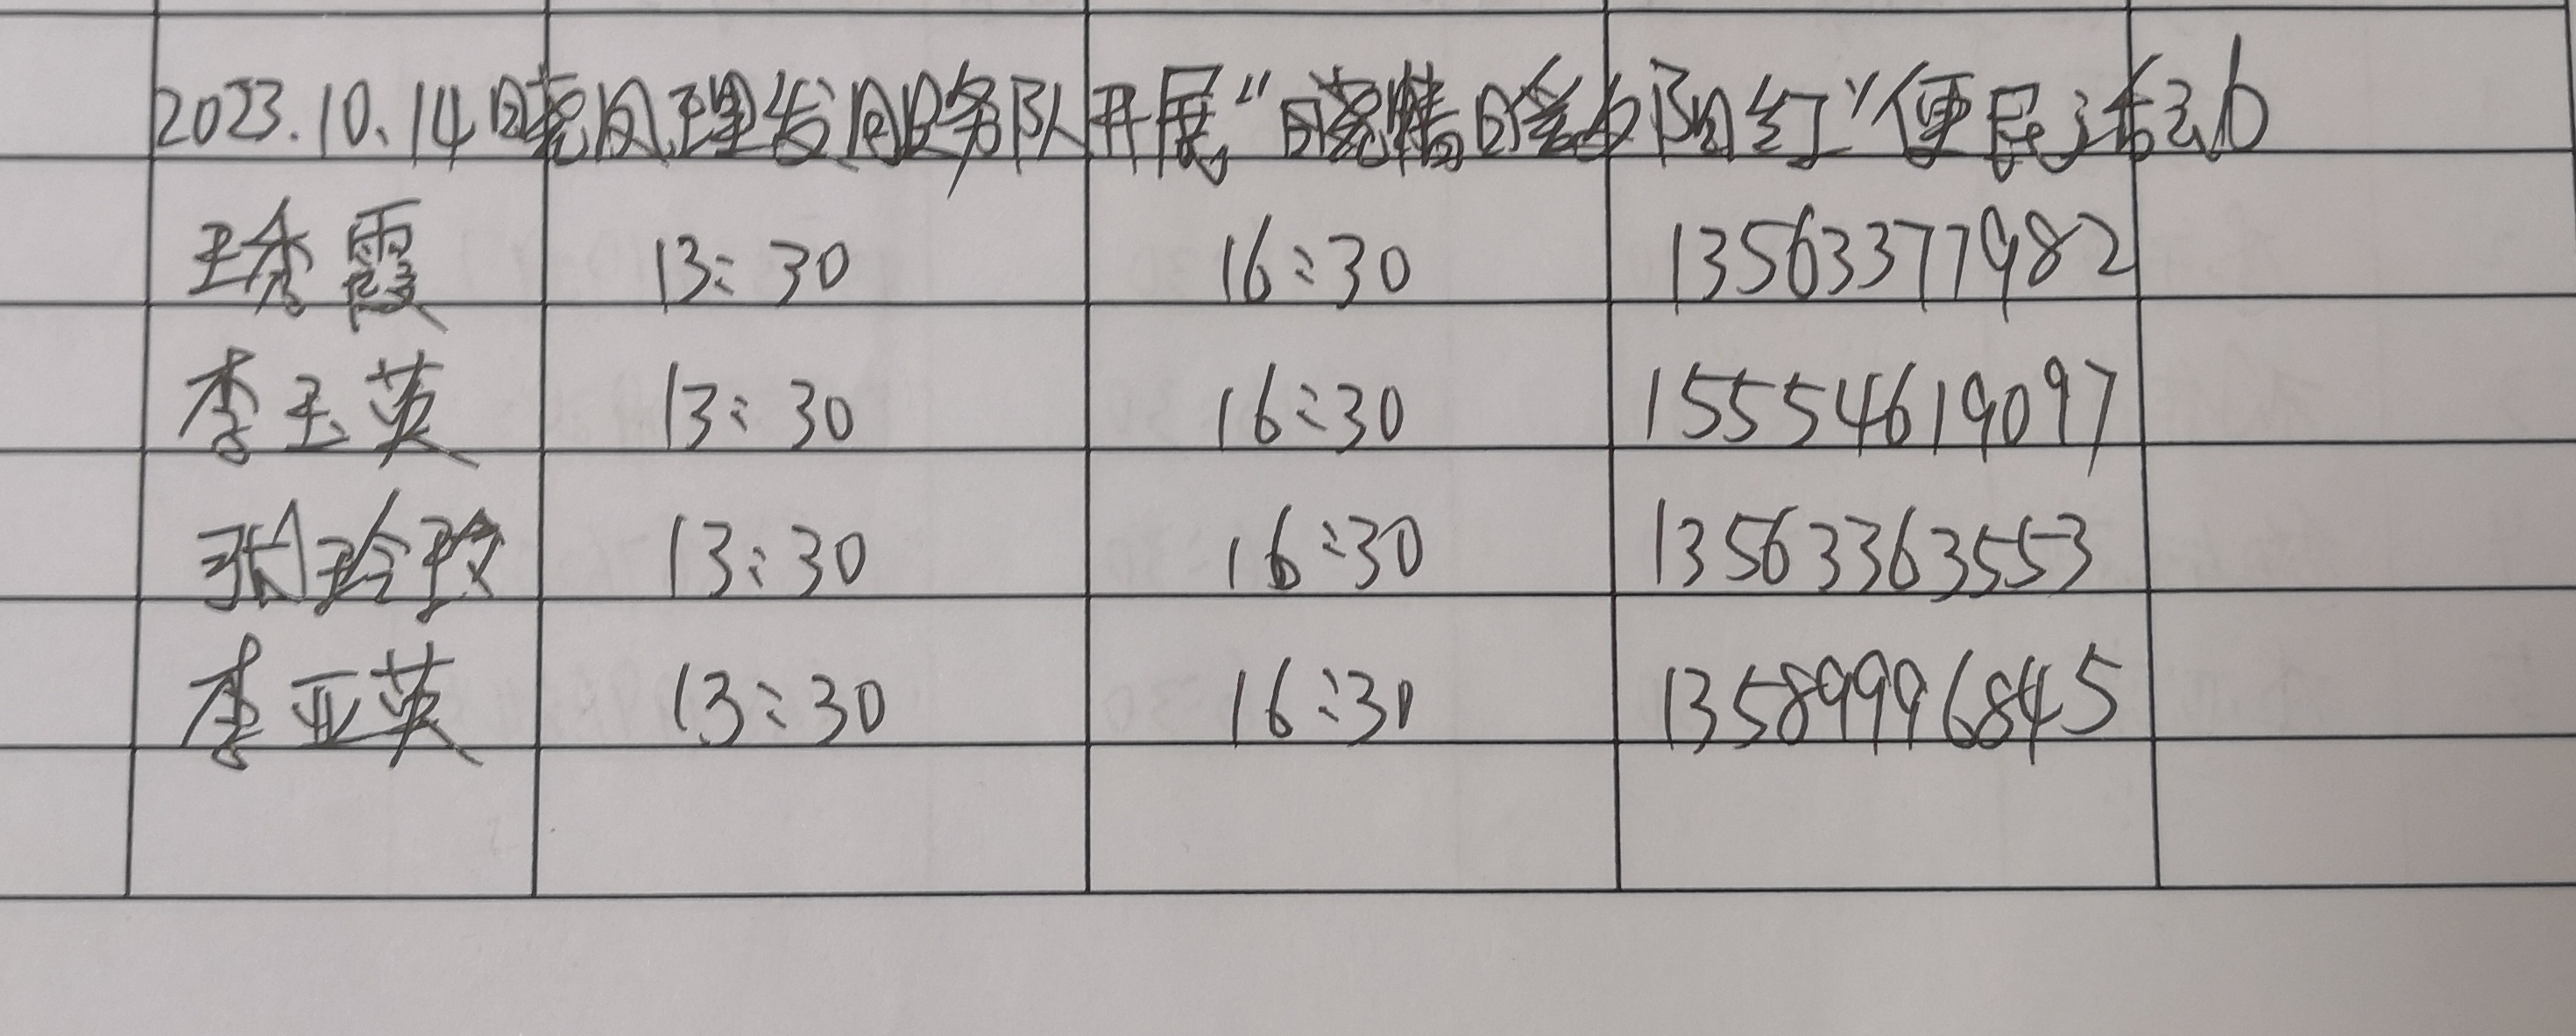 2023.10.14晓风理发服务队开展“晓情暖夕阳红”便民活动
王秀霞 13:30 16:30 13563377982
李玉英 13:30 16:30 15554619097
张玲玫 13:30 16:30 13563363553
李亚英 13:30 16:30 13589996845